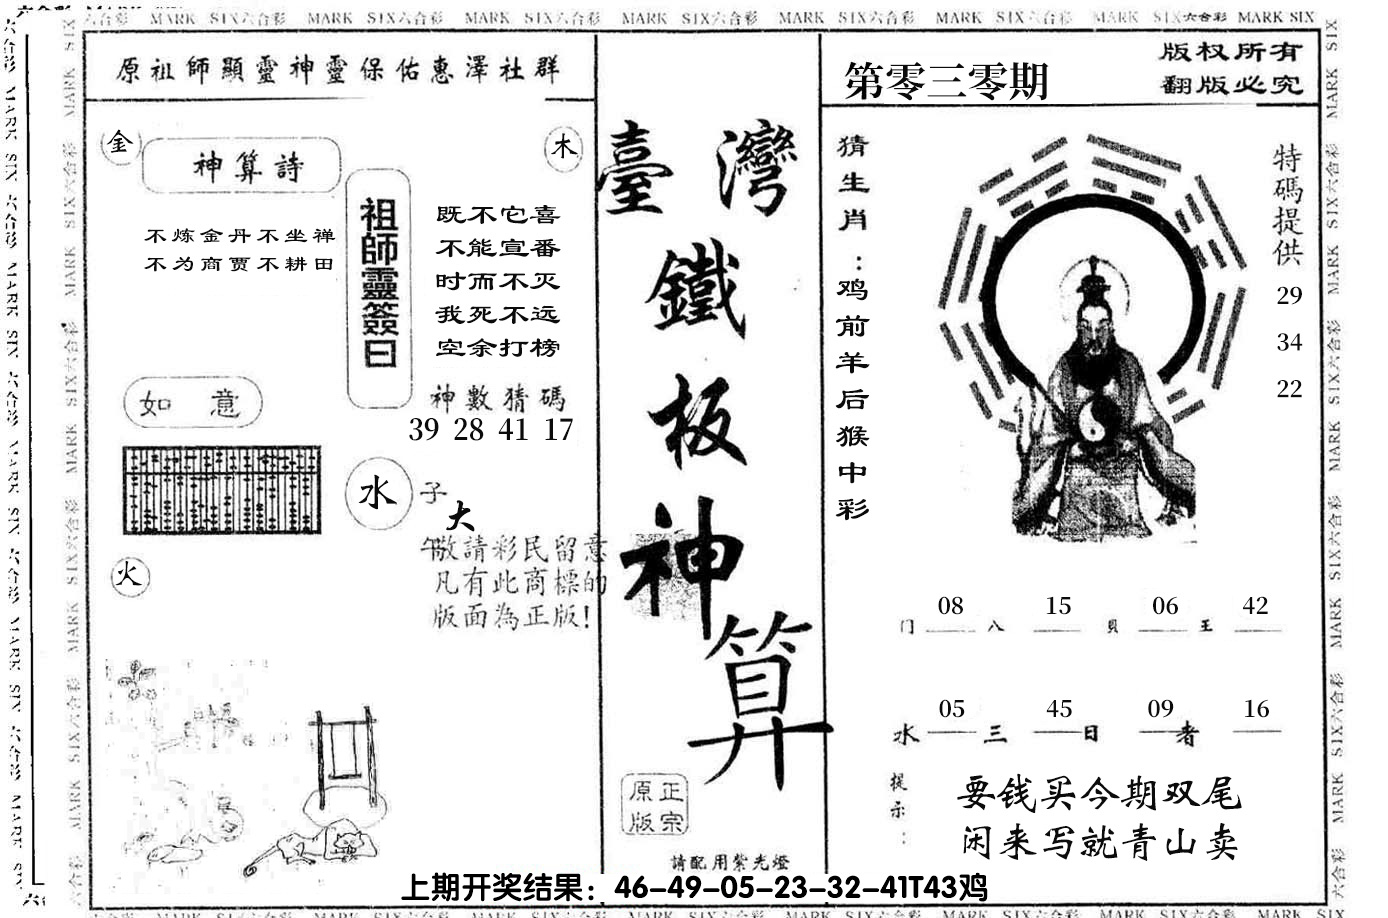 原祖師顯靈神靈保佑惠澤社群
金
神算詩
木
不炼金丹不坐禅
不为商贾不耕田
祖師靈簽曰
既不它喜
不能宣番
时而不灭
我死不远
空余打榜
如意
神數猜碼
39 28 41 17
水
子
大
午敬請彩民留意
凡有此商標的
版面為正版!
火
臺灣
鐵
板
神
算
原正
版宗
請配用紫光燈
第零三零期
版权所有
翻版必究
猜生肖：鸡前羊后猴中彩
特碼提供
29
34
22
08 15 06 42
门 八 貝 王
05 45 09 16
水 三 日 者
提示：
要钱买今期双尾
闲来写就青山卖
上期开奖结果：46-49-05-23-32-41T43鸡
MARK SIX六合彩 MARK SIX六合彩 MARK SIX六合彩 MARK SIX六合彩 MARK SIX六合彩 MARK SIX六合彩 MARK SIX六合彩 MARK SIX